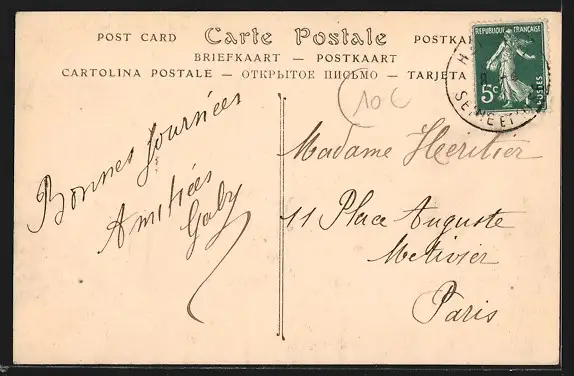 POST CARD Carte Postale POSTKA
BRIEFKAART — POSTKAART
CARTOLINA POSTALE — ОТКРЫТОЕ ПИСЬМО — TARJETA
REPUBLIQUE FRANÇAISE
5c
POSTES
SEINE ET
10 C
Bonnes Journées
Amitiées
Gaby
Madame Heritier
11 Place Auguste
Metivier
Paris